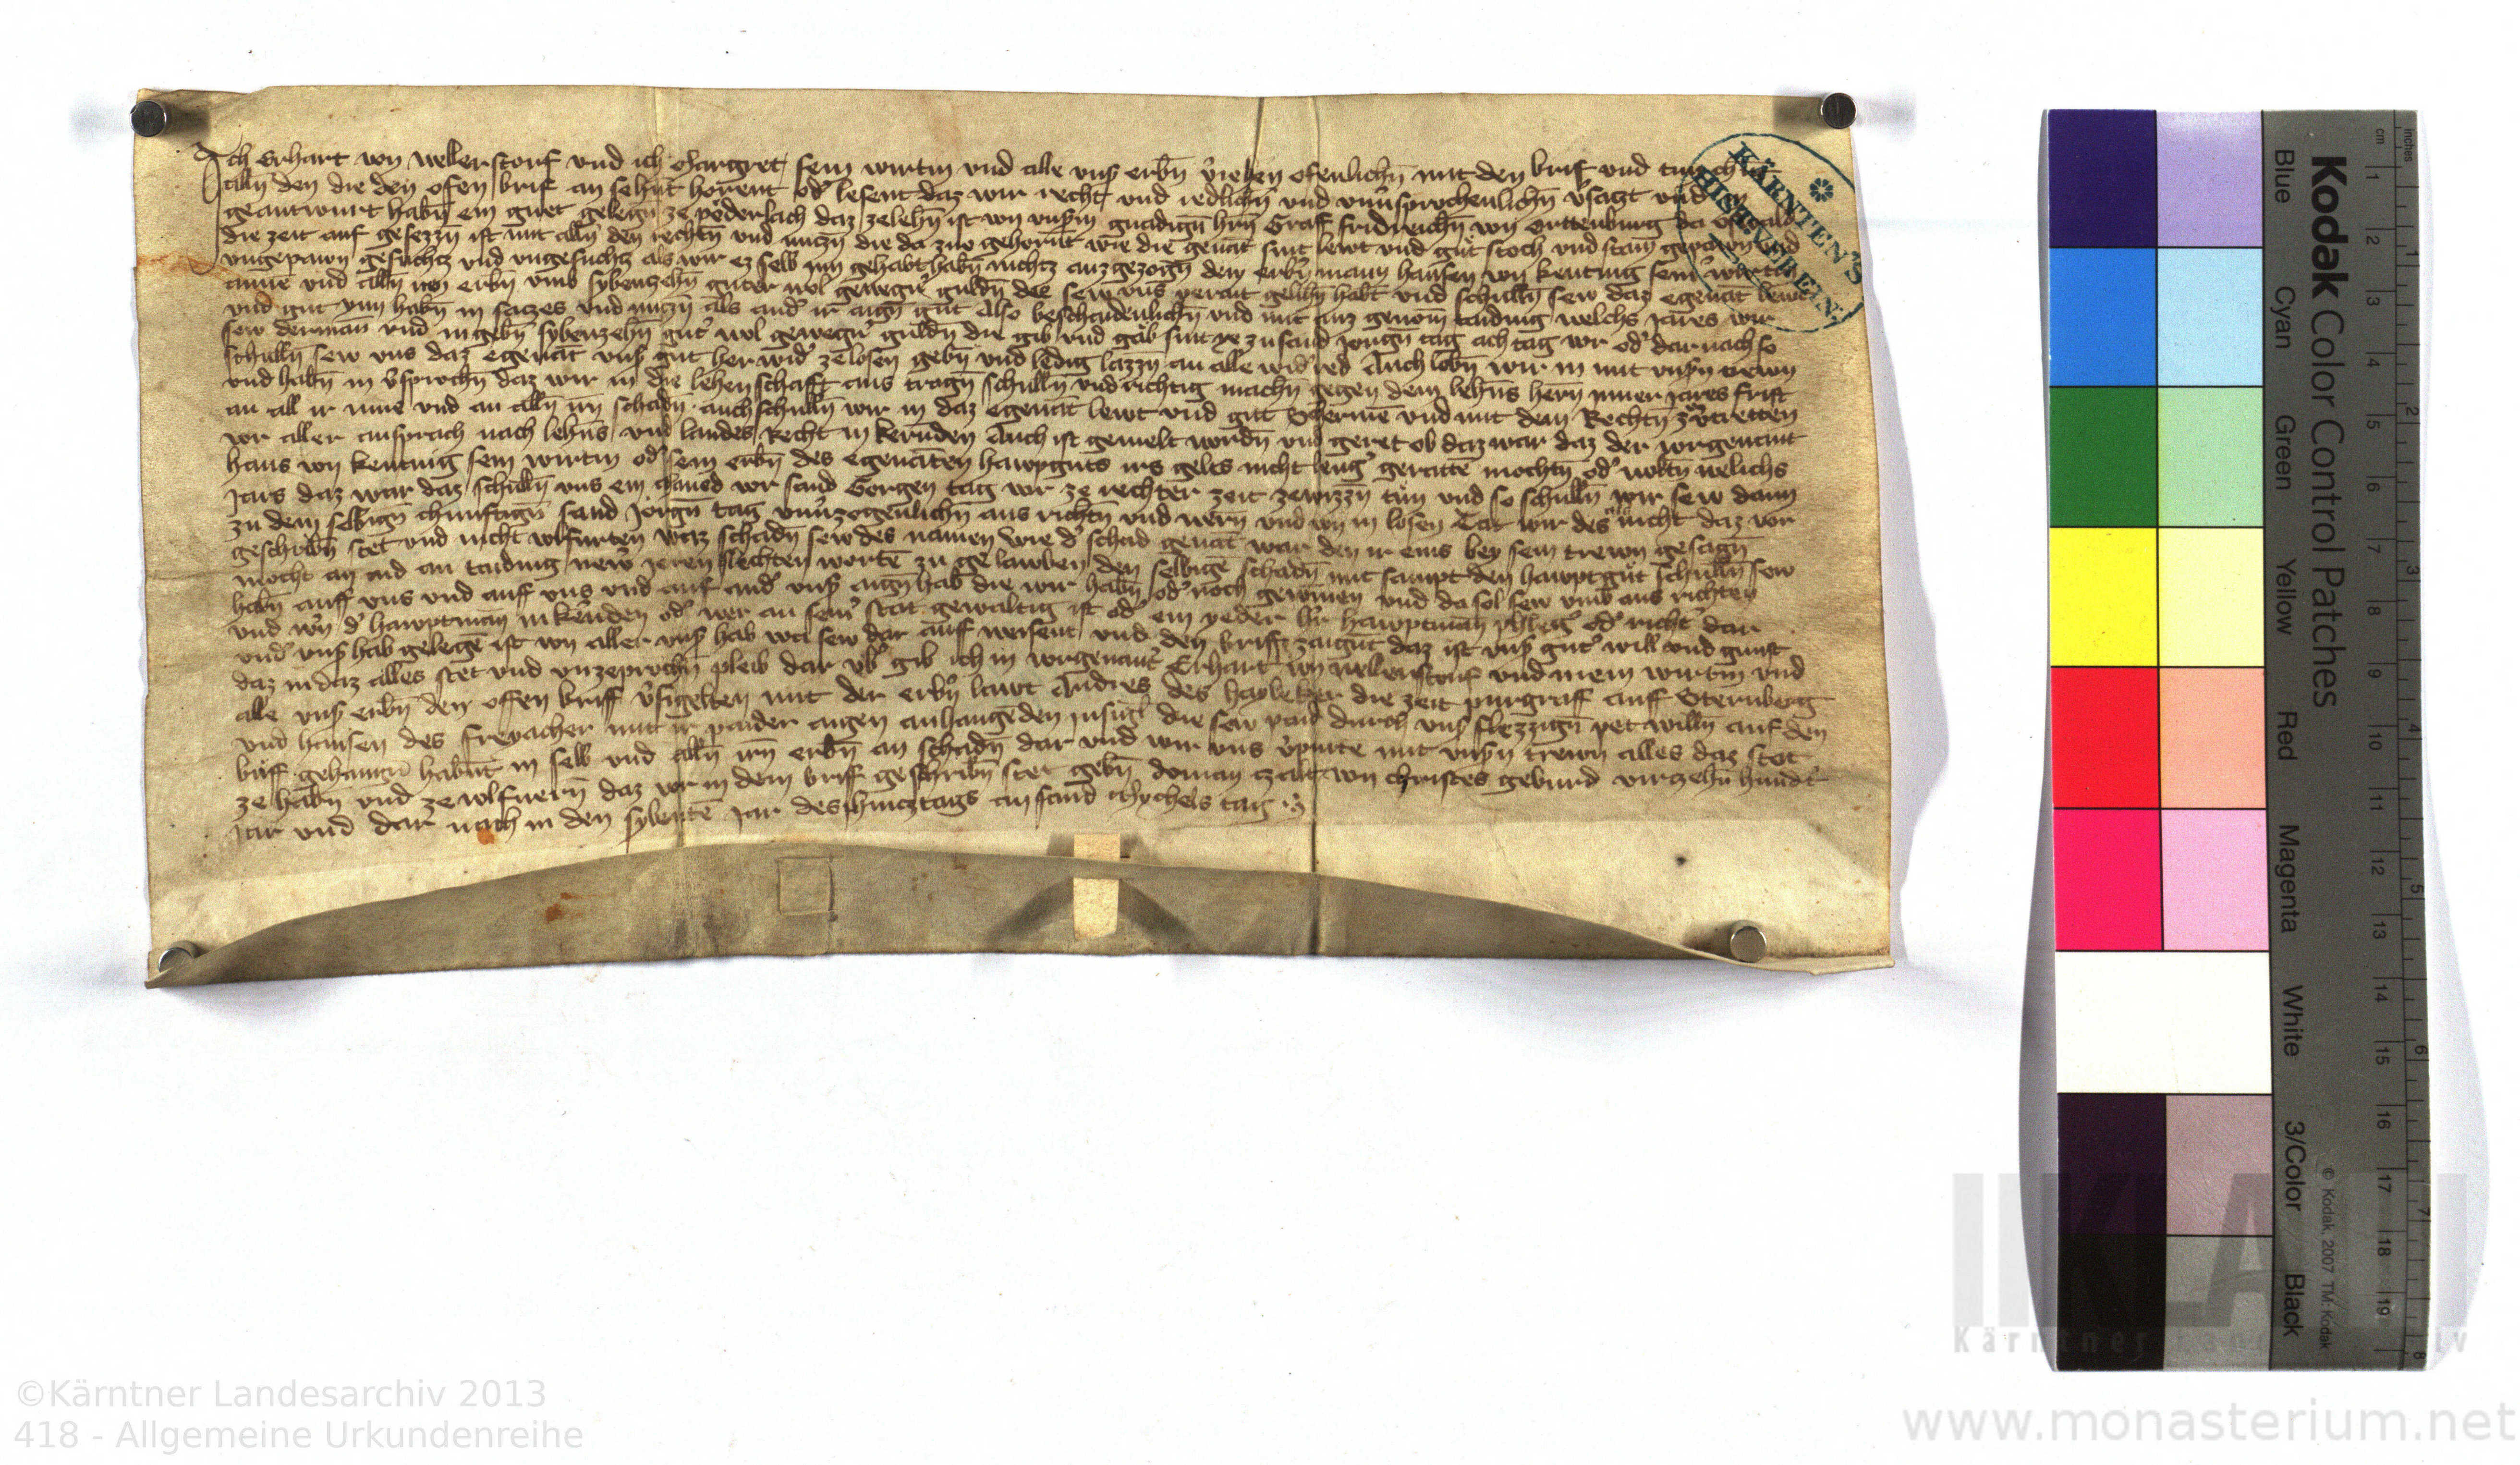 Ich Erhart von Wellerstorf vnd ich Margret sein wirtin vnd alle vnsͥ erbn̄ vͥiehen ofenlichn̄ mit den brif vnd tun chunt
alln̄ den die den ofen brif an sehnt horent odͥ lesent daz wir recht vnd redlichn̄ vnd vnuͥsprochenlichn̄ vͥsatzt vnd
geantwurt habn̄ ein guet gelegn̄ ze pederlach daz ze lehn̄ ist von vnsͥm gnadign̄ hrn̄ Graff fridreichn̄ von Orttenburg da Oswald
die zeit auf gesezzn̄ ist mit alln̄ den rechtn̄ vnd nuczn̄ die da zue gehornt wie die genāt sint lewt vnd gut stoch vnd stain gepawn vnd
vngepawn gesuchtz vnd vngesuchtz als wir ez selb inn gehabt habn̄ nichtz auzgezogn̄ dem erbͥn mann hansen von keuting seinͥ wirtin
anne vnd alln̄ irn erbn̄ vmb sybenzehn̄ guter wol gewegnͥ guldn̄ die sew vns perait gelihn̄ habt vnd schulln̄ sew daz egenāt lewt
vnd gut ynn habn̄ in satzes vnd nuczn̄ als andͥ ir aign̄ gut Also beschaidenlichn̄ vnd mit auz genom̄ taiding welchs Jares wir
sew derman̄ vnd in gebn̄ sybenzehn̄ gutͥ wol gewegnͥ guldn̄ die gib vnd gäb sint ye zu sand Jorgn̄ tag ach tag vor odͥ dar nach so
schulln̄ sew vns daz egenāt vnsͥ gut her widͥ ze losen gebn̄ vnd ledig lazzn̄ an alle widͥ red Auch lobn̄ wir in mit vnsͥn trewn
vnd habn̄ in vͥsprochn̄ daz wir in die lehenschafft aus tragn̄ schulln̄ vnd richtig machn̄ gegen dem lehns hern̄ inner Jares frist
an all ir mue vnd an alln̄ irn̄ schadn̄ auch schulln̄ wir in daz egenāt lewt vnd gut schermē vnd mit dem Rechtn̄ vͥtretten
vor aller ansprach nach lehns vnd landes Recht in kernden Auch ist gemelt wordn̄ vnd geret ob daz war daz der vorgenant
hans von keutnig sein wirtin odͥ sein erbn̄ des egenāten hawpguts irs gelts nicht lengͥ geratē mochtn̄ odͥ woltn̄ welichs
Jars daz war daz schulln̄ vns ein chaned vor sand Gorgen tag vor ze rechter zeit ze wizzn̄ tun vnd so schulln̄ wir sew dann
zu dem selbign̄ chunftign̄ sand Jorgn̄ tag vnuͥzogenlichn̄ aus richtn̄ vnd wern̄ vnd von in losen Tat wir des nicht daz vor
geschribn̄ stet vnd nicht volfurten waz schadn̄ sew des namen wie dͥ schad genāt war den ir eins bey sein trewn gesagn̄
mocht an aid an taiding newͥ ieren slechten wortē zu gelawben den selbigē schadn̄ mit sampt den hawptgut schulln̄ sew
habn̄ auff vns vnd auff vns vnd auf andͥ vnsͥ aign hab die wir habn̄ odͥ noch gewinen vnd da sol sew vmb aus richten
vnd wͥn dͥ hawptman̄ in kernden odͥ wer an seinͥ stat gewaltig ist odͥ ein yeder hͥr hawptman phlegͥ odͥ richtͥ dar
vndͥ vnsͥ hab gelegē ist von aller vnsͥ hab wa sew dar auff weisent vnd den briff zaigūt daz ist vnsͥ gutͥ will vnd gunst
daz in daz alles stet vnd vnzeprochn̄ pleib dar vbͥ gib ich in vorgenantͥ Erhart von Wellerstorf vnd mein wirtin vnd
alle vnsͥ erbn̄ den offen briff vͥsigelten mit der erbͥn lawt Andres des hayleker die zeit purgraff auff Sternberg
vnd hansen des freyacher mit ir paider aigen anhangēden insigl die sew paid durch vnsͥ flezzign̄ pet willn̄ auf den
briff gehangn̄ habnt in selb vnd alln̄ irn̄ erbn̄ an schadn̄ dar vnd wir vns vͥpinte mit vnsͥn trewn alles daz stet
ze habn̄ vnd ze volfuern̄ daz vor in dem brif geschribn̄ stet gebn̄ doman czalt von christes geburd vierzehn̄ hundͥt
Jar vnd dar nach in den sybentē Jar des phincztags an sand Mychels tag
KÄRNTEN'S
HIST. VEREIN.
Kodak Color Control Patches
Blue Cyan Green Yellow Red Magenta White 3/Color Black
© Kodak, 2007 TM: Kodak
inches 1 2 3 4 5 6 7 8
cm 1 2 3 4 5 6 7 8 9 10 11 12 13 14 15 16 17 18 19
©Kärntner Landesarchiv 2013
418 - Allgemeine Urkundenreihe
www.monasterium.net